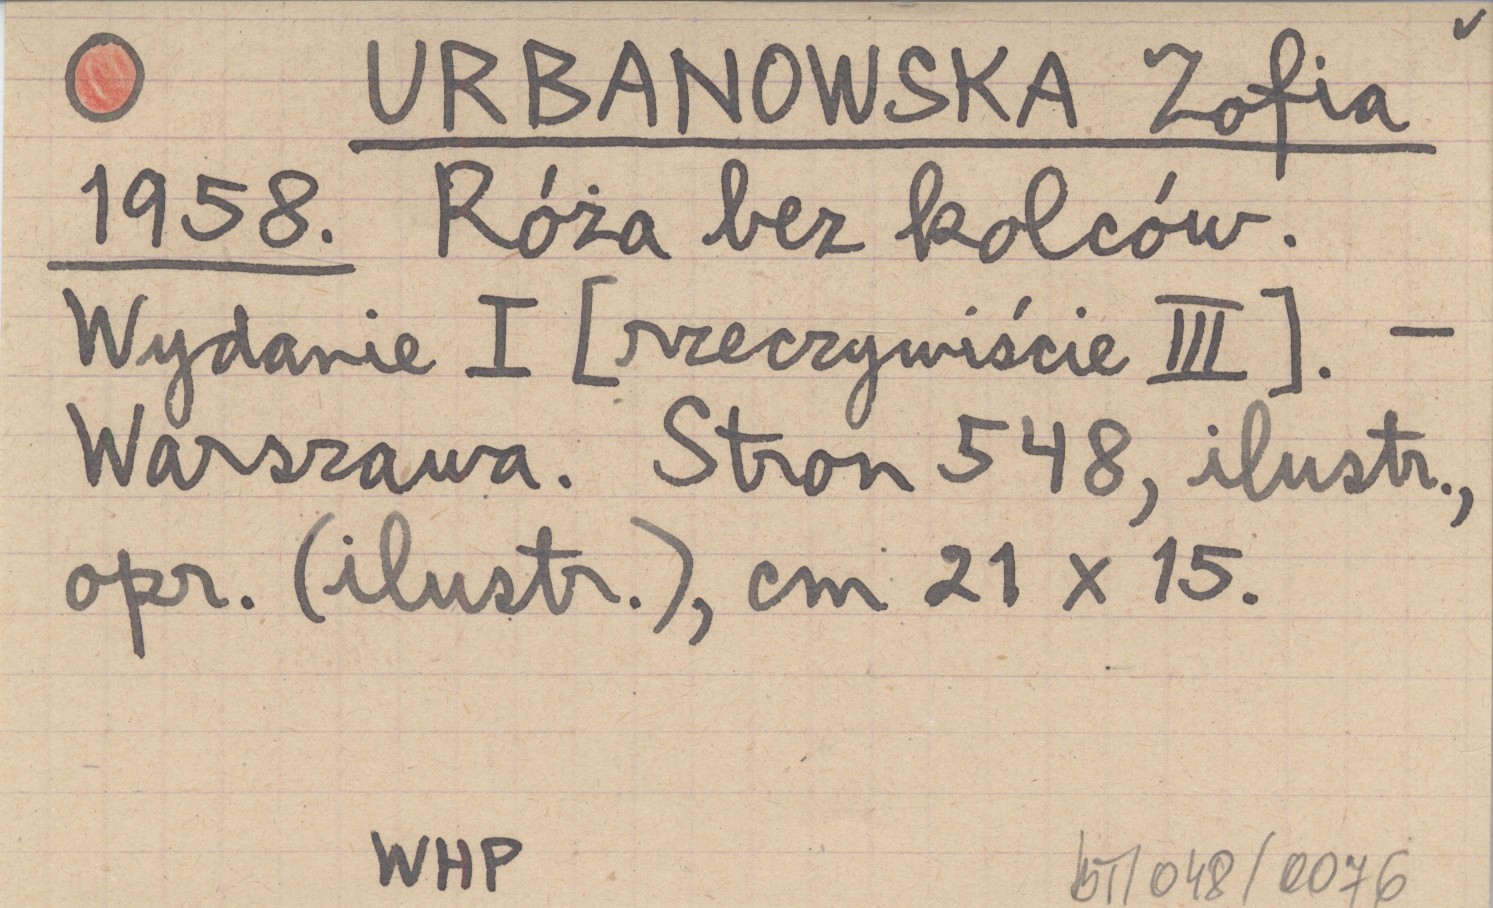 URBANOWSKA Zofia
1958. Róża bez kolców.
Wydanie I [rzeczywiście III]. —
Warszawa. Stron 548, ilustr.,
opr. (ilustr.), cm 21 x 15.
WHP
/048/0076